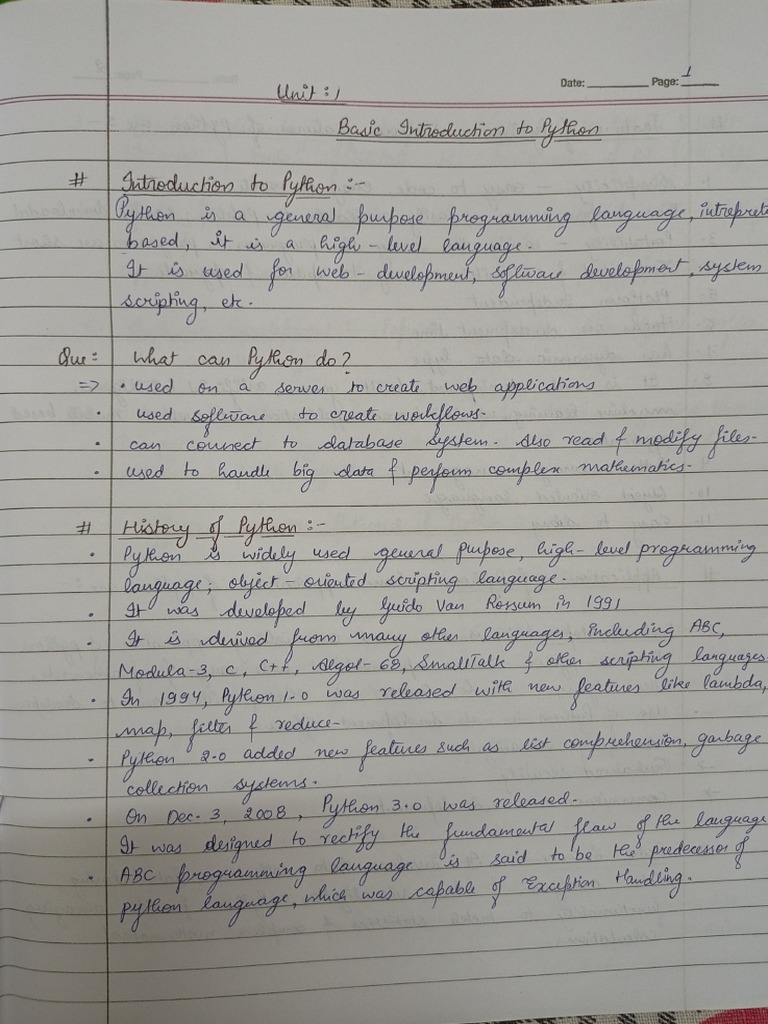 Date: ________ Page: 1
Unit : 1
Basic Introduction to Python
# Introduction to Python :-
Python is a general purpose programming language, intreprete
based, it is a high-level language.
It is used for web-development, software development, system
scripting, etc.
Que: What can Python do?
=> • used on a server to create web applications
• used software to create workflows.
• can connect to database system. Also read & modify files.
• used to handle big data & perform complex mathematics.
# History of Python :-
• Python is widely used general purpose, high-level programming
language; object-oriented scripting language.
• It was developed by Guido Van Rossum in 1991
• It is derived from many other languages, including ABC,
Modula-3, C, C++, Algol-68, SmallTalk & other scripting languages.
• In 1994, Python 1.0 was released with new features like lambda,
map, filter & reduce.
• Python 2.0 added new features such as list comprehension, garbage
collection systems.
• On Dec. 3, 2008, Python 3.0 was released.
It was designed to rectify the fundamental flaw of the language
• ABC programming language is said to be the predecessor of
python language, which was capable of Exception Handling.